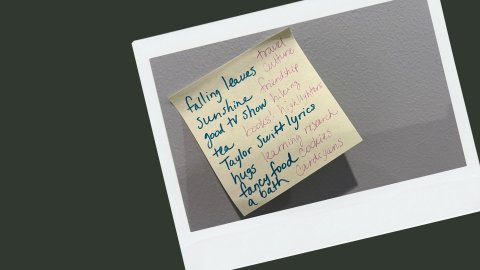 falling leaves travel
sunshine culture
good tv show friendship
tea "books" baking
Taylor Swift lyrics highlighters
hugs learning research
fancy food cookies
a bath cardigans